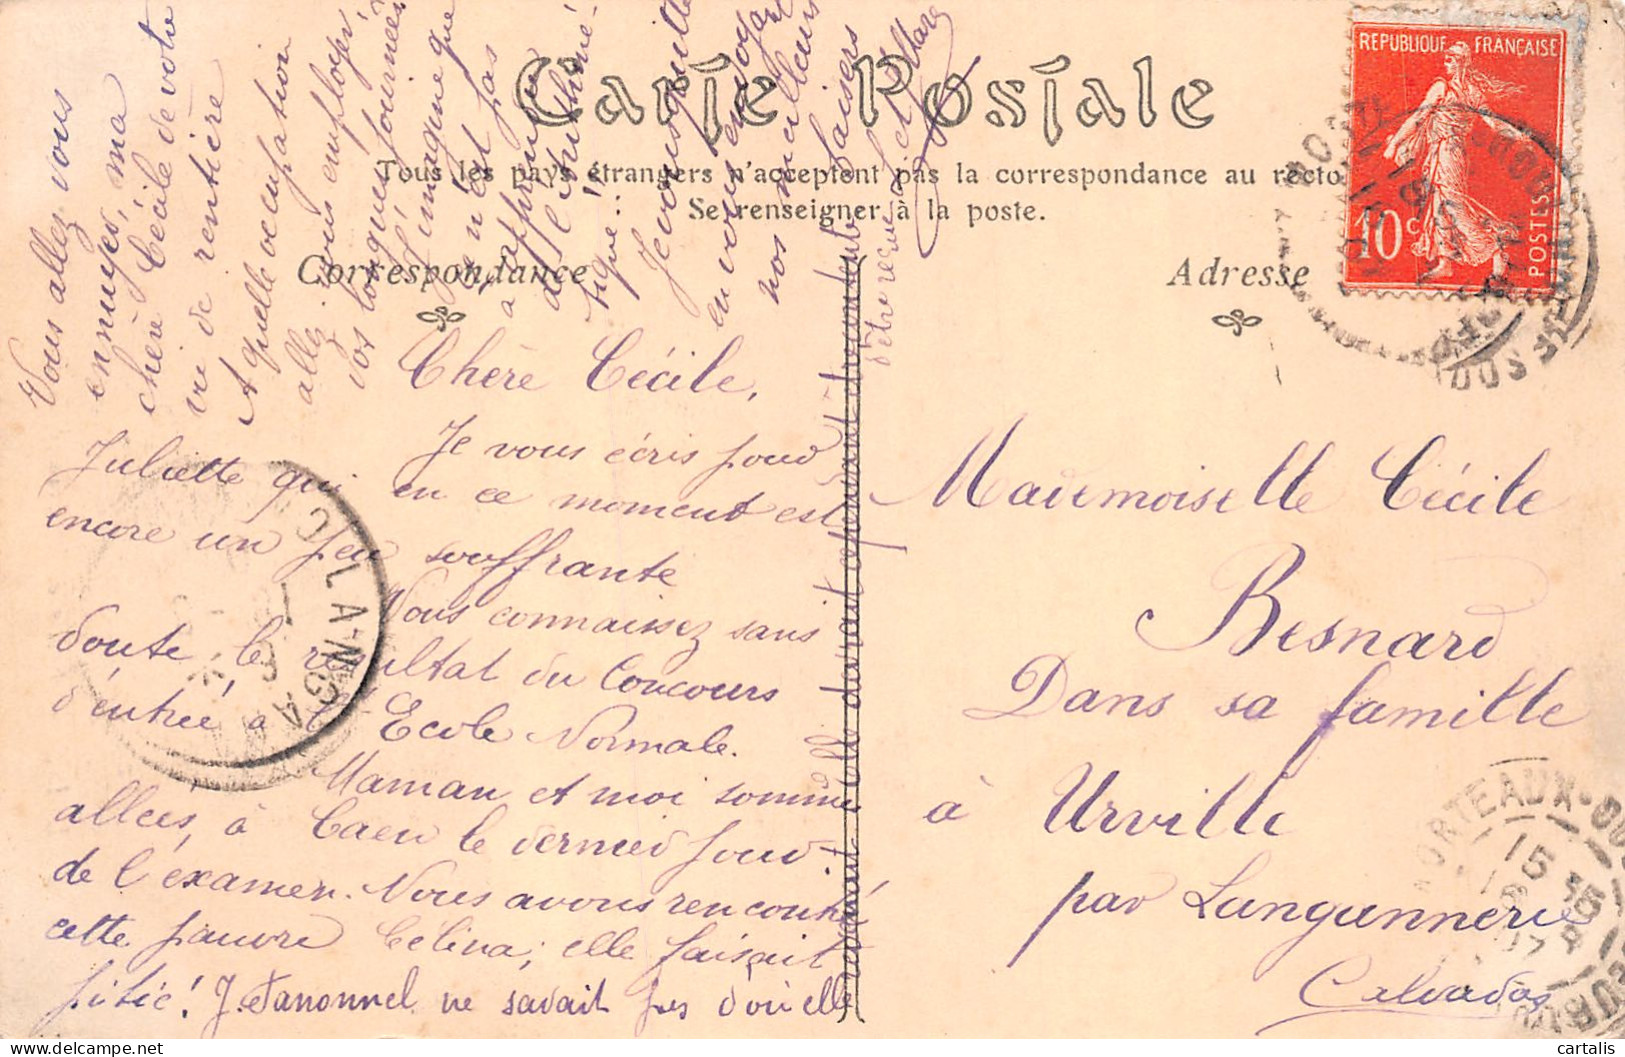 Carte Postale
Tous les pays étrangers n'acceptent pas la correspondance au recto
Se renseigner à la poste.
Correspondance
Adresse
REPUBLIQUE FRANÇAISE
10 c
POSTES
Chère Cécile,
Je vous écris pour
Juliette qui en ce moment est
encore un peu souffrante
Vous connaissez sans
doute, le résultat du Concours
d'entrée à l'Ecole Normale.
Maman et moi sommes
allées, à Caen le dernier jour
de l'examen. Nous avons rencontré
cette pauvre Célina; elle faisait
pitié! J. ne savait pas d'où elle
cependant
d'être reçue
Vous allez vous
ennuyer, ma
chère Cécile de votre
vie de rentière
A quelle occupation
allez-vous employer
vos longues journées
J'imagine que
ce n'est pas
à apprendre
de l'Arithmé-
tique:
Je vous quitte
en vous envoyant
nos meilleurs
baisers
Mademoiselle Cécile
Besnard
Dans sa famille
à Urville
par Langannerie
Calvados
LANGANN
MORTEAUX-COU
15 35
cartalis